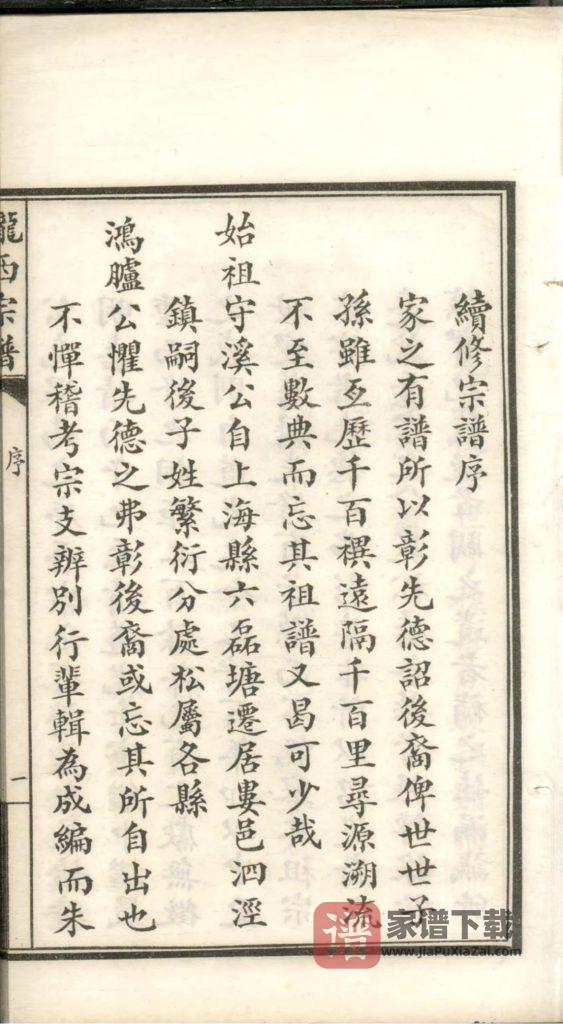 續修宗譜序
家之有譜所以彰先德詔後裔俾世世子
孫雖亙歷千百禩遠隔千百里尋源溯流
不至數典而忘其祖譜又曷可少哉
始祖守溪公自上海縣六磊塘遷居婁邑泗涇
鎮嗣後子姓繁衍分處松屬各縣
鴻臚公懼先德之弗彰後裔或忘其所自出也
不憚稽考宗支辨別行輩輯為成編而朱
隴西宗譜
序
一
譜 家谱下载
www.jiaPuXiaZai.com